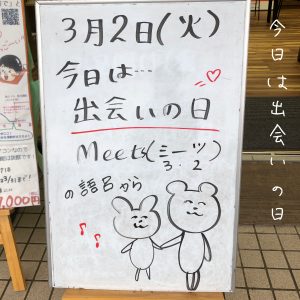 3月2日(火)
今日は…
出会いの日
Meets(ミーツ)
3.2
の語呂から
今日は出会いの日